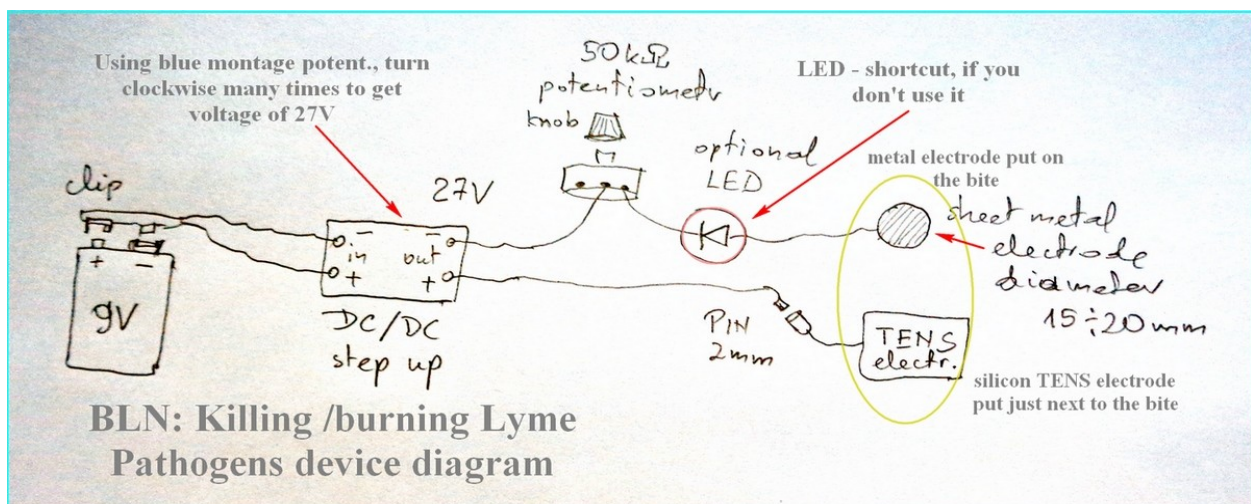 Using blue montage potent., turn
clockwise many times to get
voltage of 27V
50kΩ
potentiometr
knob
LED - shortcut, if you
don't use it
optional
LED
metal electrode put on
the bite
clip
27V
sheet metal
electrode
diameter
15÷20mm
+ -
9V
- -
in out
+ +
DC/DC
step up
PIN
2mm
TENS
electr.
silicon TENS electrode
put just next to the bite
BLN: Killing /burning Lyme
Pathogens device diagram